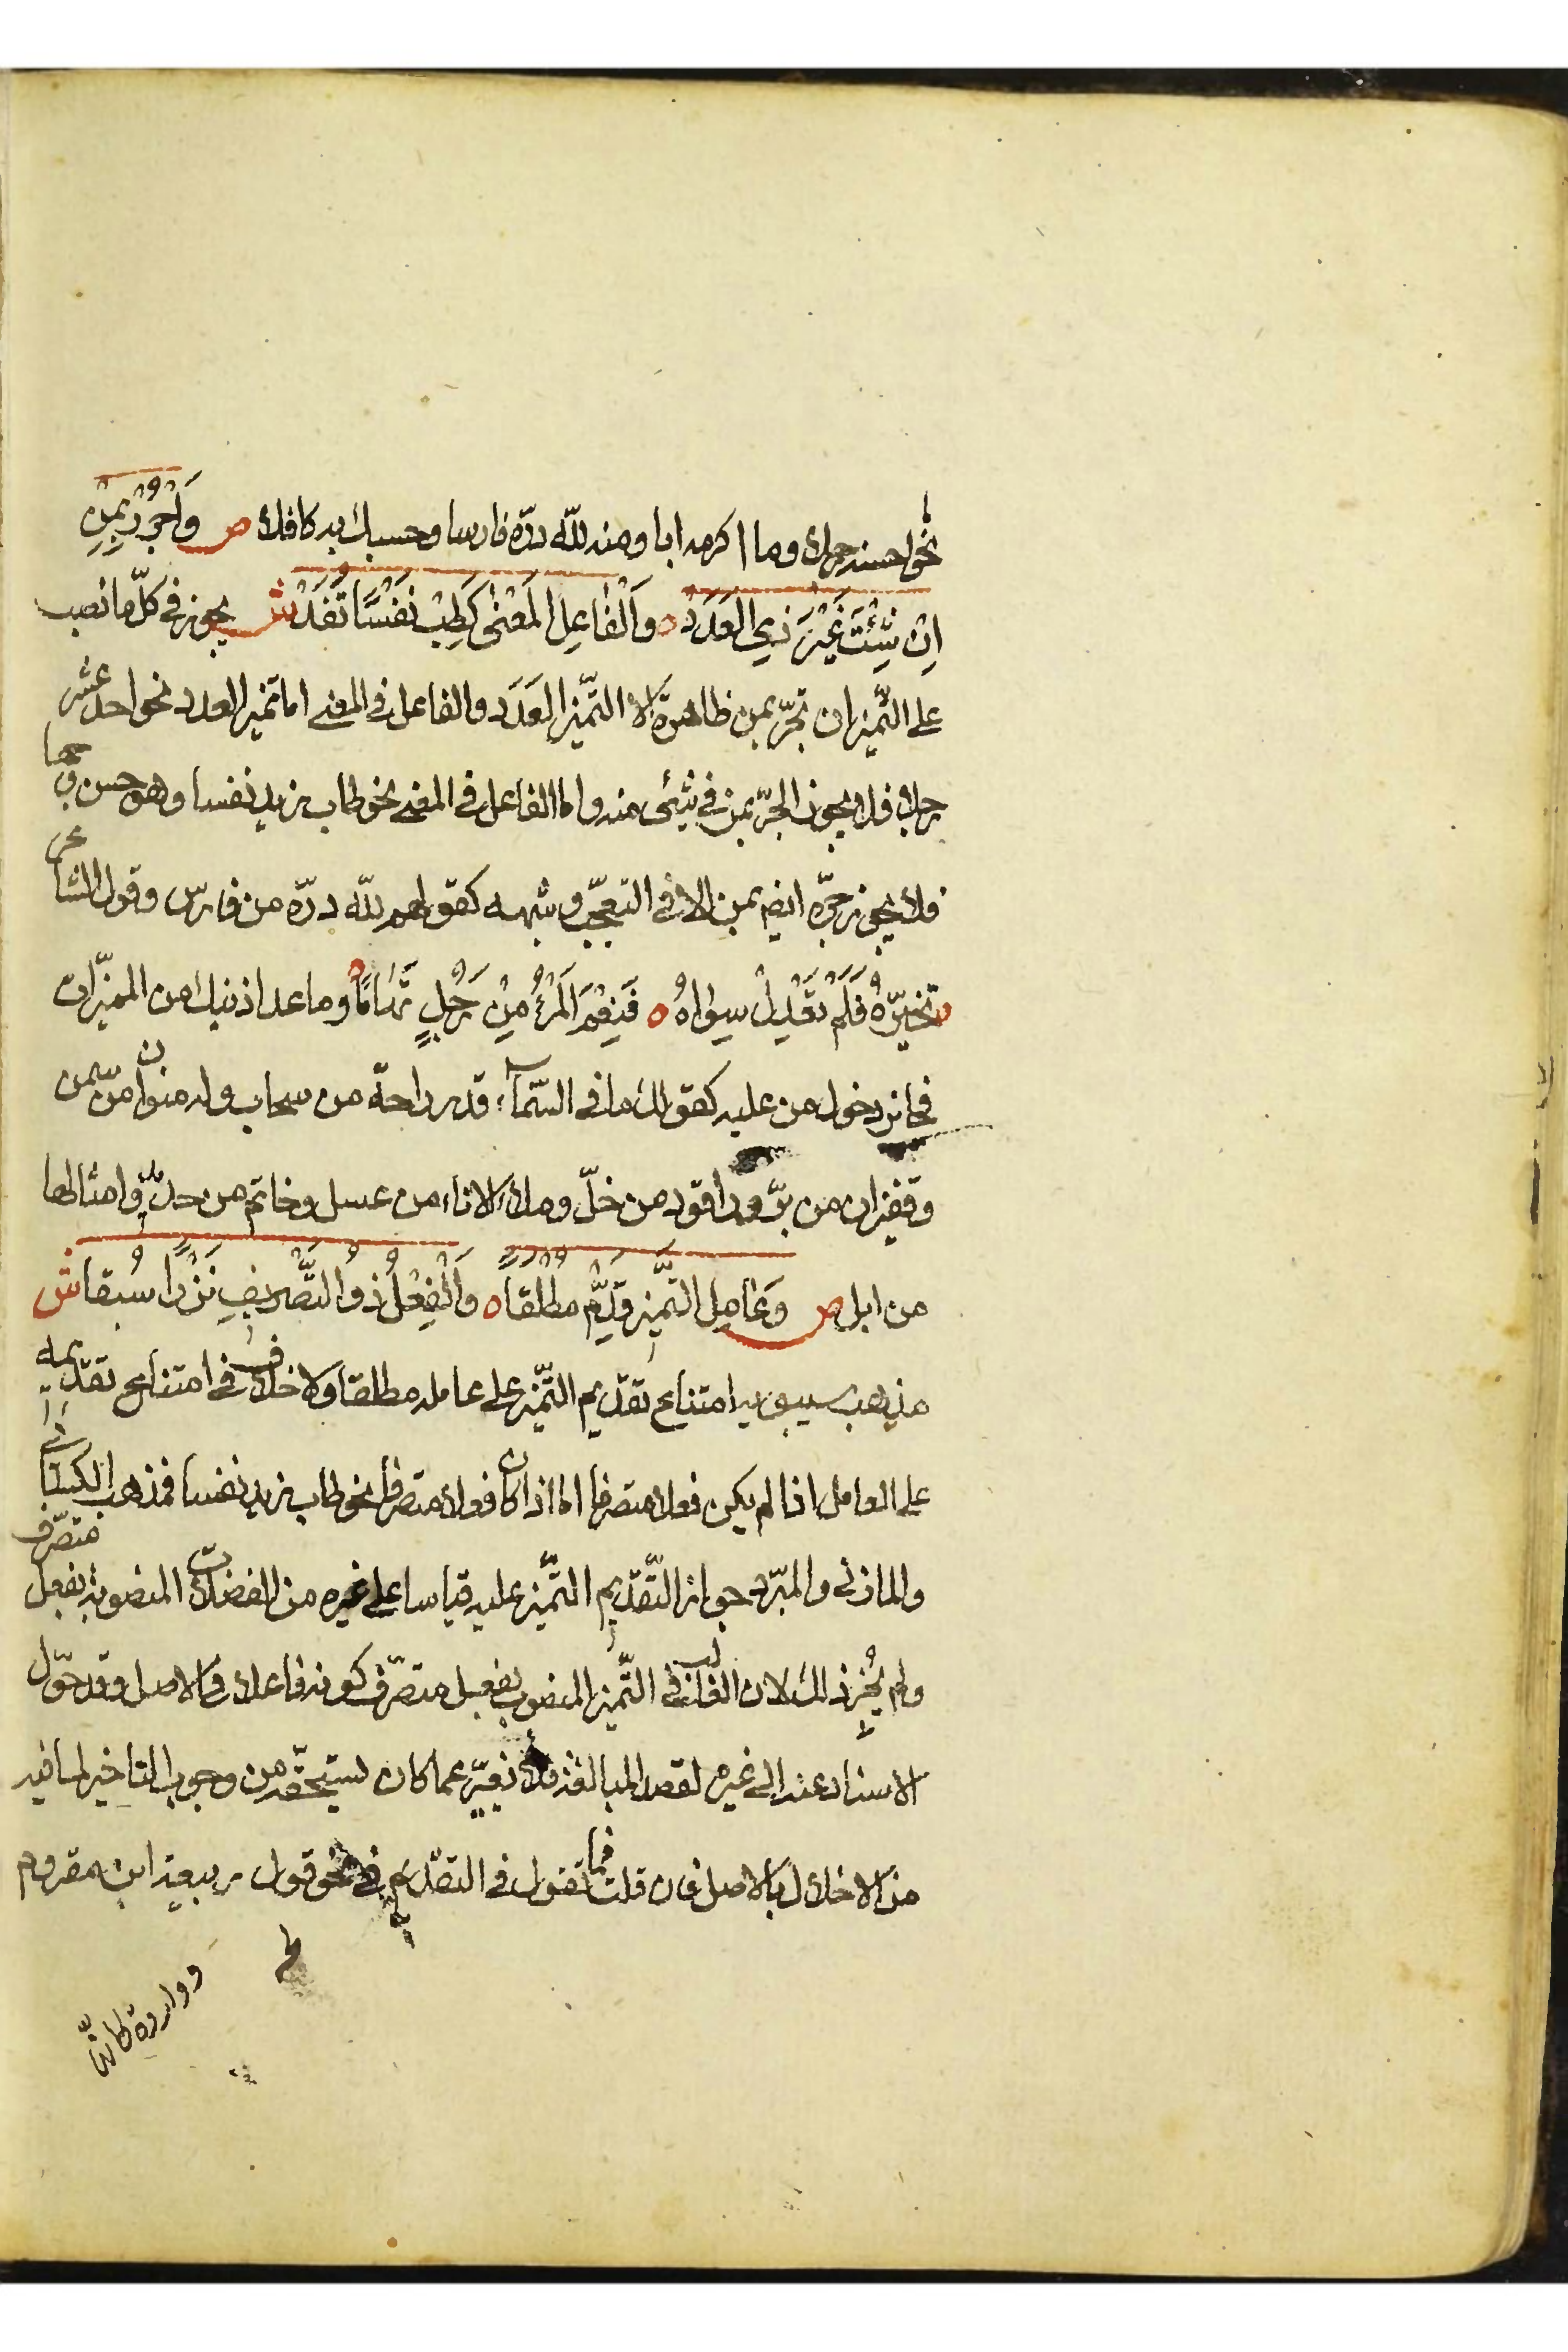 نحو احسنه رجلا وما اكرمه ابا ومنه لله درّه فارسا وحسبك به كافلا ص وَاجْرُرْ بِمِنِ
اِنْ شِئْتَ غَيْرَ ذِي العَدَدْ ه وَالْفَاعِلِ المَعْنٰى كَطِبْ نَفْسًا تُفَدْ ش يجوز في كلّ ما نصب
على التّميز ان تجرّ بمن ظاهرة الا التّميز العَدَد والفاعل في المعنى اما تميز العدد نحو احد عشر
رجلا فلا يجوز الجرّ بمن في شيئ منه واما الفاعل في المعنى نحو طاب زيد نفسا وهو حسن وجها
فلا يجوز جرّه ايضا بمن الا في التعجّب وشبهه كقولهم لله درّه من فارس وقول الشاعر
تخيّرهُ فَلَمْ يَعْدِلْ سِوَاهُ ه فَنِعْمَ المَرْءُ مِنْ رَجُلٍ تِهَامًا وما عدا ذينك من المميزات
فجائز دخول من عليه كقولك ما في السّماء قدر راحة من سحاب وله منوان من سمن
وقفيزان من برّ وراقود من خلّ وملاء الاناء من عسل وخاتم من حديد وامثالها
من ابل ص وَعَامِلَ التَّميزِ قَدِّمْ مُطْلَقًا ه وَالْفِعْلُ ذُو التَّصْرِيفِ نَزْرًا سُبِقا ش
مذهب سيبويه امتناع تقديم التّميز على عامله مطلقا ولا خلاف في امتناع تقديمه
على العامل اذا لم يكن فعلا متصرفا اما اذا كان فعلا متصرفا نحو طاب زيد نفسا فمذهب الكسائي
والمازني والمبرّد جواز التّقديم التّميز عليه قياسا على غيره من الفضلات المنصوبة بفعل متصرّف
ولم يُجِز ذلك لان الغالب في التّميز المنصوب بفعل متصرّف كونه فاعلا في الاصل وقد حوّل
الاسناد عنه الى غيره لقصد المبالغة فلا يغيّر عما كان يستحقّه من وجوب التاخير لما فيه
من الاخلال بالاصل فان قلت فما تقول في التقديم في نحو قول ربيعة ابن مقروم
وواردة كانّها